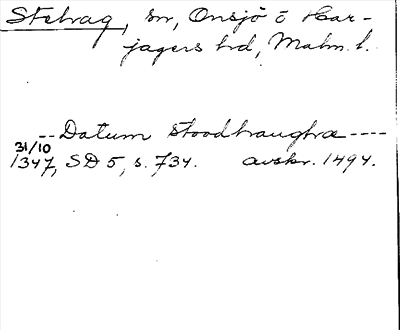 Stehag, sn, Onsjö o Har-
jagers hd, Malm. l.
-- Datum Stoodhaughæ ----
31/10
1347, SD 5, s. 734. avskr. 1494.